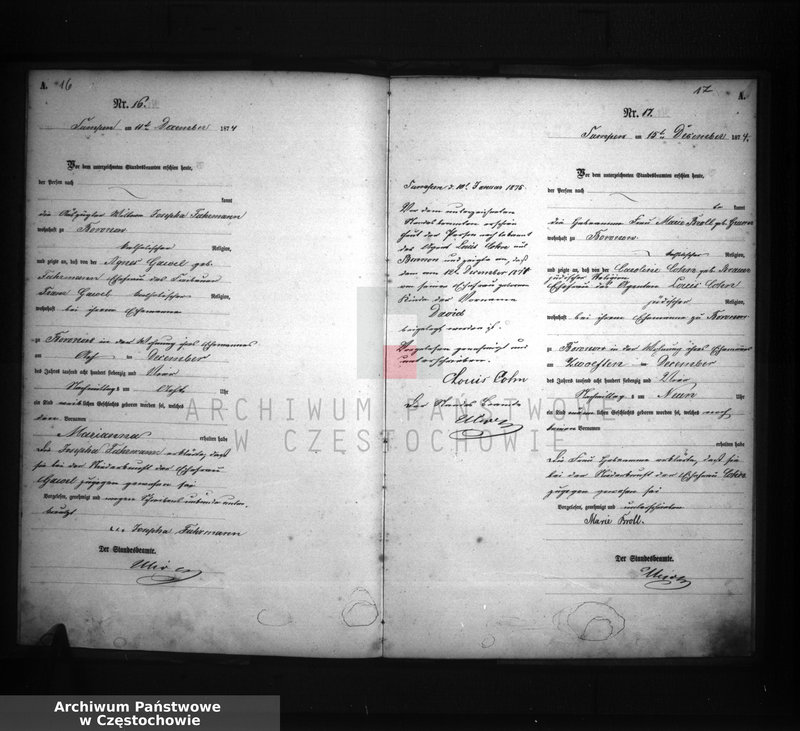 A. 16
Nr. 16.
am Dezember 1874
Vor dem unterzeichneten Standesbeamten erschien heute,
der Person nach
kannt
die Wittwe Josepha Fuhrmann
wohnhaft zu
katholischer Religion,
und zeigte an, daß von der Agnes Gawel geb.
Fuhrmann Ehefrau des
Franz Gawel katholischer Religion,
wohnhaft bei ihrem Ehemanne
zu in der Wohnung ihres Ehemannes
am December
des Jahres tausend acht hundert siebenzig und Vier
Nachmittags um Uhr
ein Kind weiblichen Geschlechts geboren worden sei, welches
den Vornamen
Marianna erhalten habe
Die Josepha Fuhrmann erklärte, daß
sie bei der Niederkunft der Ehefrau
Gawel zugegen gewesen sei
Vorgelesen, genehmigt und wegen unter-
kreuzt
+++ Josepha Fuhrmann
Der Standesbeamte.
10t Januar 1875
Vor dem unterzeichneten
Standesbeamten erschien
heut der Person nach bekannt
der Agent Louis Cohn aus
und zeigte an, daß
dem am 12t December 1874
von seiner Ehefrau geborenen
Kinde der Vorname
David
beigelegt worden ist.
Vorgelesen genehmigt und
unterschrieben.
Louis Cohn
Der Standes Beamte
17
A.
Nr. 17.
am 15t December 1874.
Vor dem unterzeichneten Standesbeamten erschien heute,
der Person nach
be kannt
die Hebamme Frau Marie Kroll geb.
wohnhaft zu
katholischer Religion,
und zeigte an, daß von der Caroline Cohn geb.
jüdischer Religion
Ehefrau des Agenten Louis Cohn
jüdischer Religion,
wohnhaft bei ihrem Ehemanne zu
zu in der Wohnung ihres Ehemannes
am Zwoelften December
des Jahres tausend acht hundert siebenzig und Vier
Nachmittags um Neun Uhr
ein Kind männlichen Geschlechts geboren worden sei, welches noch
keinen Vornamen
erhalten habe
Die Frau Hebamme erklärte, daß sie
bei der Niederkunft der Ehefrau Cohn
zugegen gewesen sei
Vorgelesen, genehmigt und unterschrieben
Marie Kroll.
Der Standesbeamte.
ARCHIWUM PAŃSTWOWE
W CZĘSTOCHOWIE
Archiwum Państwowe
w Częstochowie